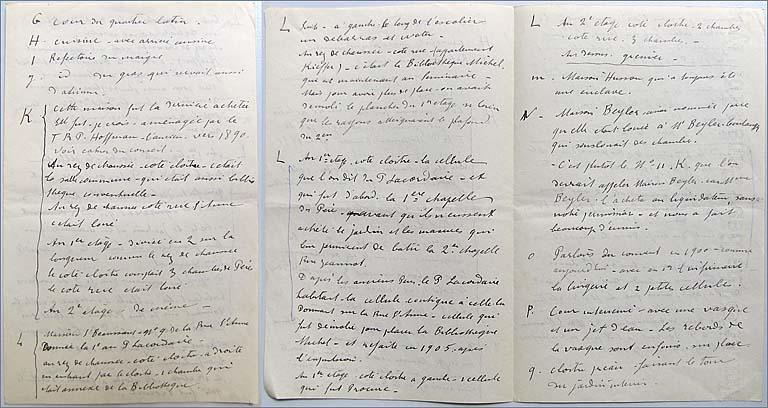 G cour du quartier latin.
H. cuisine - avec arrière cuisine
I Refectoire du maigre
J. id du gras qui servait aussi
d'alumni.
K Cette maison fut la dernière achetée
Elle fut - je crois - aménagée par le
T.R.P. Hoffman - Canin. vers 1890.
Voir cahier du conseil.
Au rez de chaussée - coté cloître - c'était
la salle commune - qui était aussi biblio
thèque conventuelle -
Au rez de chaussée coté rue Ste Anne
c'était loué
Au 1er étage - divisé en 2 sur la
longueur comme le rez de chaussée
le coté cloître comptait 3 chambres de Père
le coté rue était loué
Au 2e étage - de même -
L Maison - No 9 de la Rue Ste Anne
Donnée la 1re au P Lacordaire -
au rez de chaussée - coté - cloître - à droite
en entrant par le cloître - 1 chambre qui
était annexe de la Bibliothèque.
L Puis - à gauche le long de l'escalier
un débarras et voute -
Au rez de chaussée - coté rue (appartement
Kieffer) - c'était la Bibliothèque Michel,
qui est maintenant au Séminaire -
Mais pour avoir plus de place - on avait
démoli le plancher du 1er étage si bien
que les rayons atteignaient le plafond
du 2e
L Au 1er étage. coté cloître - la cellule
que l'on dit du P Lacordaire - et
qui fut d'abord la 1ère chapelle
du Père - avant qu'ils n'eussent
acheté le jardin et les masures qui
leur permirent de batir la 2me chapelle
Rue Jeannot.
D'après les anciens Pères, le P Lacordaire
habitait la cellule contigue à celle-là
Donnant sur la Rue Ste Anne - cellule qui
fut démolie pour placer la Bibliothèque
Michel - et refaite en 1905, après
l'expulsion.
Au 1er étage coté cloître à gauche - 1 cellule
qui fut Procure -
L Au 2e étage coté cloître - 2 chambres
coté rue. 3 chambres. -
Au dessus grenier -
m - Maison Husson qui a toujours été
une enclave.
N - Maison Beyler ainsi nommée parce
qu'elle était louée à Mr Beyler
qui sous louait des chambres.
- C'est plutôt le No 11. K. que l'on
devrait appeler Maison Beyler. car Mme
Beyler l'acheta au liquidateur sans
notre permission - et nous a fait
beaucoup d'ennuis.
O Parloirs du couvent en 1900 - comme
aujourd'hui - avec au 1er l'infirmerie
la lingerie et 2 petites cellules.
P. Cour interieure - avec une vasque
et un jet d'eau - Les rebords de
la vasque sont enfouis sur place
q. cloître préau - faisant le tour
du jardin intérieur.